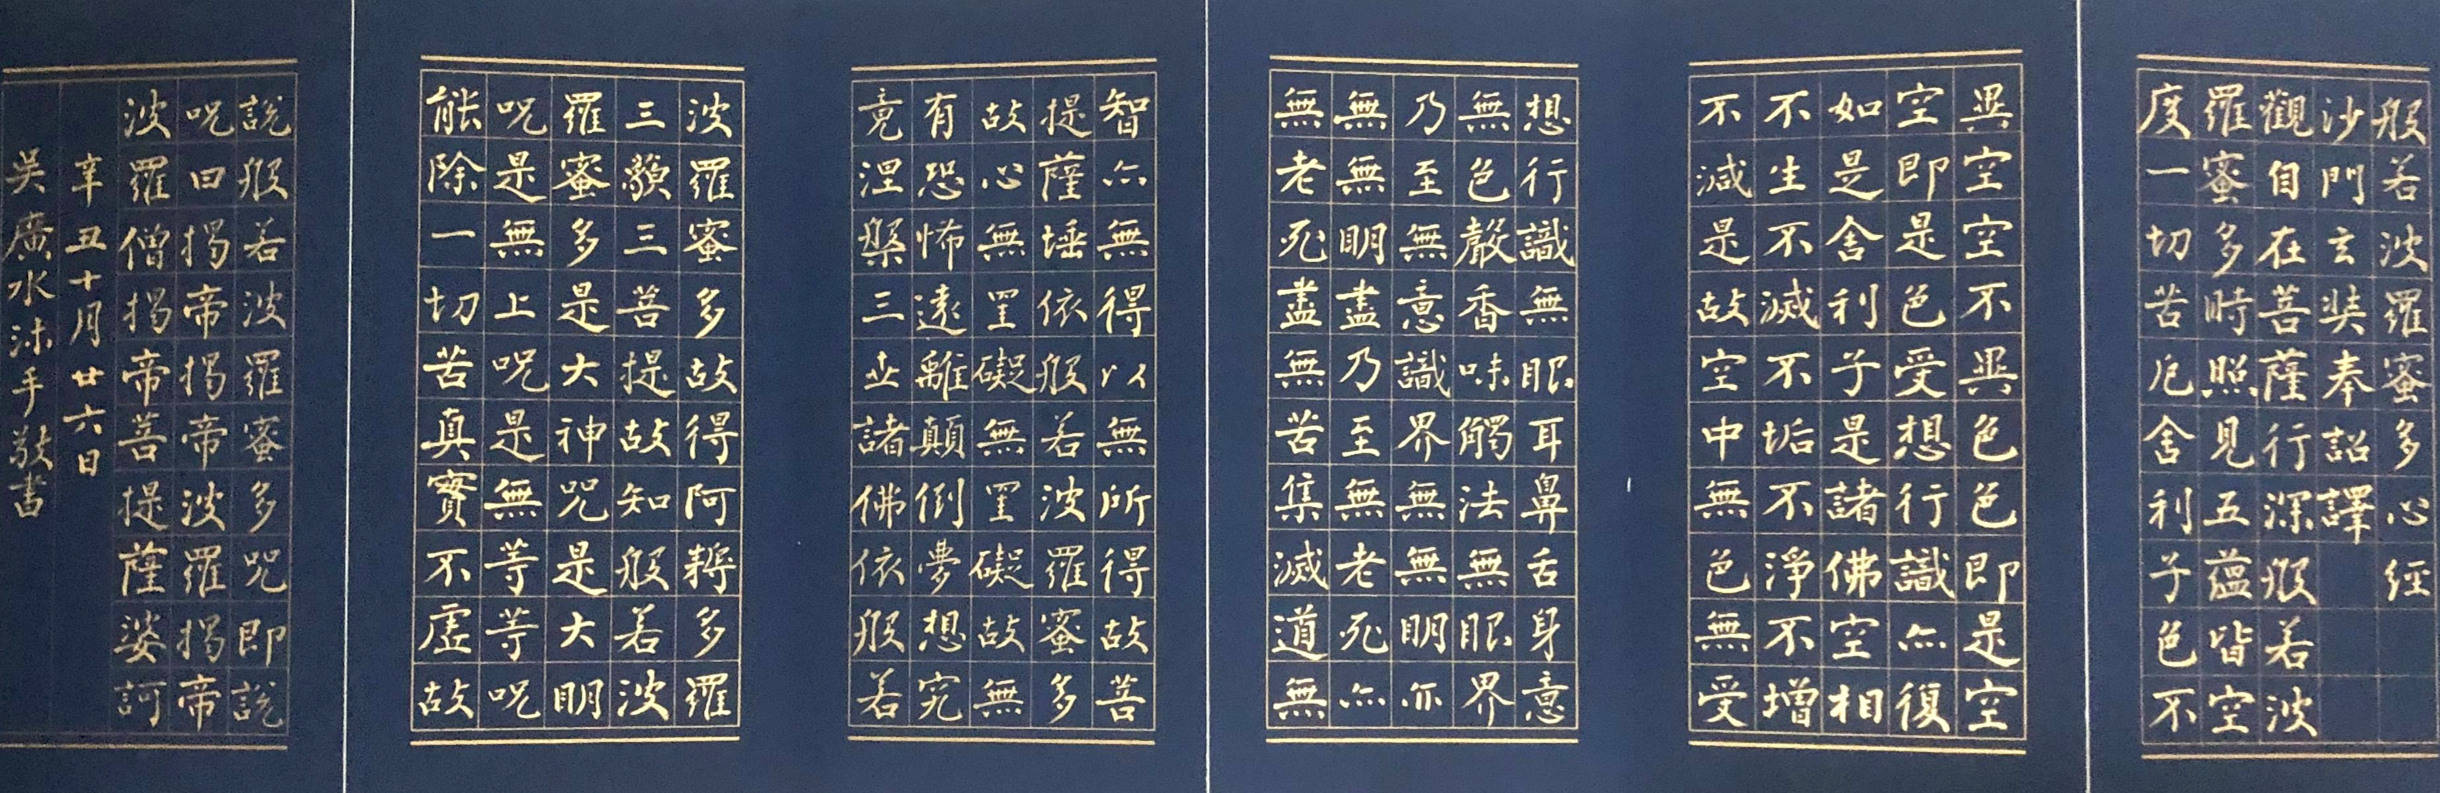 般若波羅蜜多心經
沙門玄奘奉詔譯
觀自在菩薩行深般若波
羅蜜多時照見五蘊皆空
度一切苦厄舍利子色不
異空空不異色色即是空
空即是色受想行識亦復
如是舍利子是諸佛空相
不生不滅不垢不淨不增
不減是故空中無色無受
想行識無眼耳鼻舌身意
無色聲香味觸法無眼界
乃至無意識界無無明亦
無無明盡乃至無老死亦
無老死盡無苦集滅道無
智亦無得以無所得故菩
提薩埵依般若波羅蜜多
故心無罣礙無罣礙故無
有恐怖遠離顛倒夢想究
竟涅槃三世諸佛依般若
波羅蜜多故得阿耨多羅
三藐三菩提故知般若波
羅蜜多是大神咒是大明
咒是無上咒是無等等咒
能除一切苦真實不虛故
說般若波羅蜜多咒即說
咒曰揭帝揭帝波羅揭帝
波羅僧揭帝菩提薩婆訶
辛丑十月廿六日
吳廣水沐手敬書